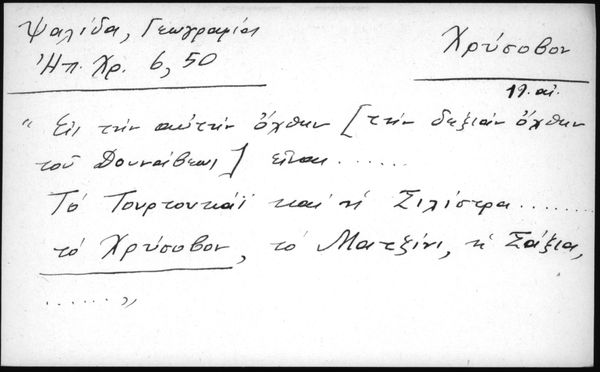 Ψαλίδα, Γεωγραφία
Ἠπ. Χρ. 6, 50
Χρύσοβον
19. αἰ.
" Εἰς τὴν αὐτὴν ὄχθην [τὴν δεξιὰν ὄχθην
τοῦ Δουνάβεως] εἶναι ......
Τό Τουρτουκάϊ καὶ ἡ Σιλίστρα ........
τό Χρύσοβον, τό Ματζίνι, ἡ Σάξια,
...... "